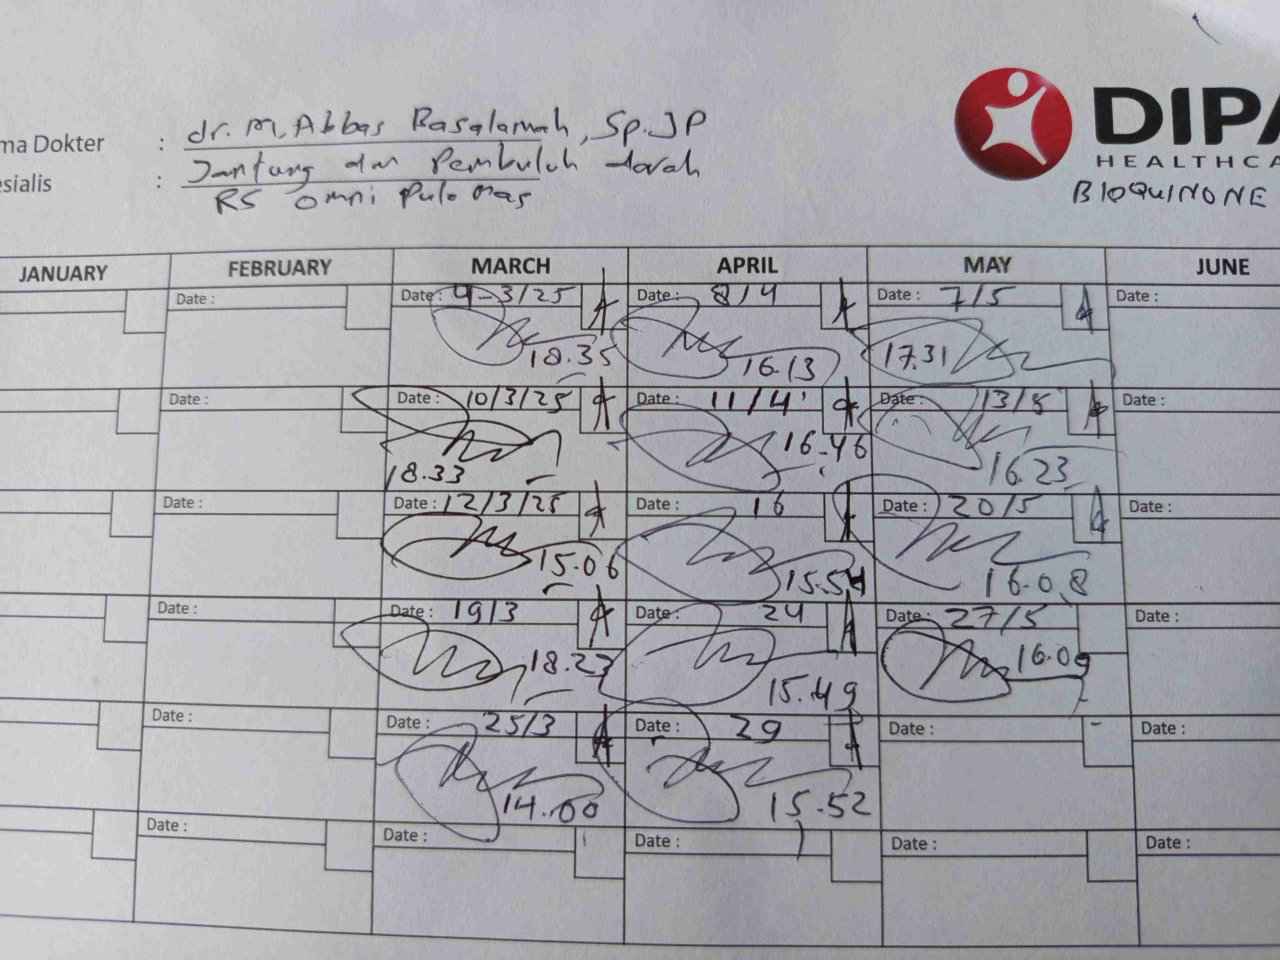 ma Dokter : dr. M. Abbas Basalamah, Sp.JP
esialis : Jantung dan Pembuluh darah
RS Omni Pulo Mas
DIPA
HEALTHCA
BIOQUINONE
JANUARY FEBRUARY MARCH APRIL MAY JUNE
Date : Date : 4-3/25 Date : 8/4 Date : 7/5 Date :
18.35 16.13 17.31
Date : Date : 10/3/25 Date : 11/4 Date : 13/5 Date :
18.33 16.46 16.23
Date : Date : 12/3/25 Date : 16 Date : 20/5 Date :
15.06 15.54 16.08
Date : Date : 19/3 Date : 24 Date : 27/5 Date :
18.23 15.49 16.09
Date : Date : 25/3 Date : 29 Date : Date :
14.00 15.52
Date : Date : Date : Date : Date :